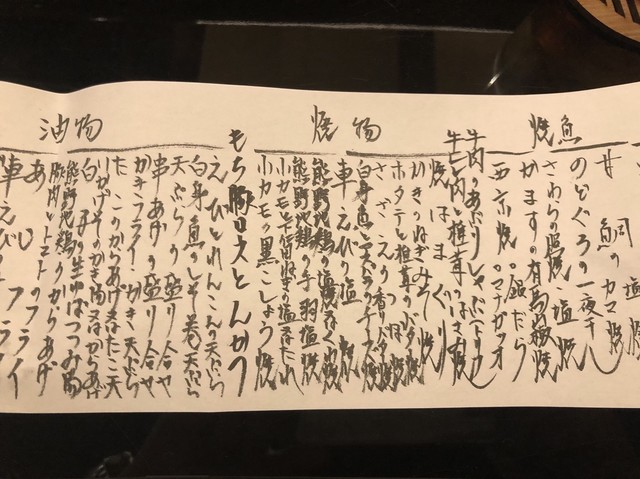 焼魚
塩焼
甘鯛のカマ焼
のどぐろの一夜干
さわらの照焼 塩焼
かますの有馬焼
西京焼 ・銀だら ・マナガツオ
牛肉のあぶりしゃぶ
牛ヒレ肉と椎茸のはさみ焼
焼物
焼はまぐり
かきのねぎみそ焼
ホタテと椎茸のバター焼
さざえのつぼ焼
白身魚と大葉のチーズ焼
車えびの塩焼
熊野地鶏の塩焼又はたれ焼
熊野地鶏の手羽塩焼
小カモと下仁田ねぎの塩又はたれ
小カモの黒こしょう焼
もち豚ロースとんかつ
油物
えびとれんこん天ぷら
白身魚のしそ巻天ぷら
天ぷらの盛り合せ
串あげの盛り合せ
かきフライ・かき天ぷら
たこのからあげ又はたこ天
りかげそのかき揚又はからあげ
白身の生ゆばつつみ揚
熊野地鶏のからあげ
豚肉とトマトのフライ
あ
車えびのフライ